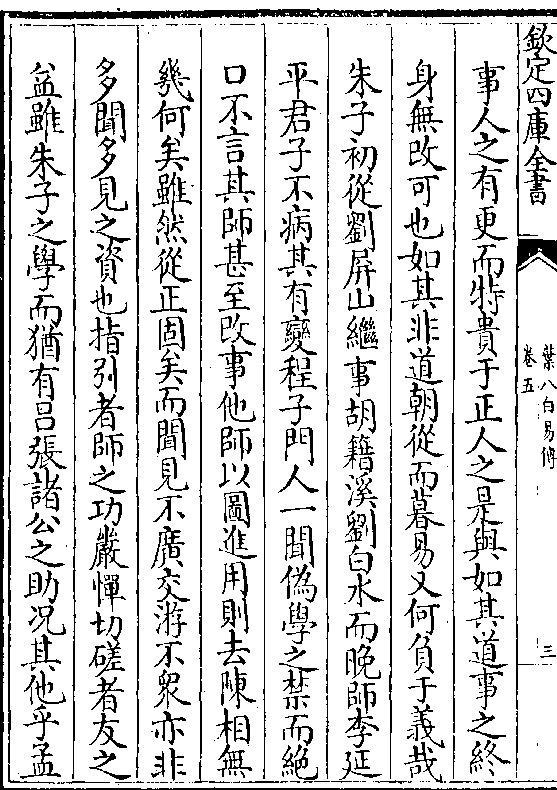 欽定四庫全書
葉八白易傳
卷五
三
事人之有更而特貴于正人之是與如其道事之終
身無改可也如其非道朝從而暮易又何負于義哉
朱子初從劉屏山繼事胡籍溪劉白水而晚師李延
平君子不病其有變程子門人一聞偽學之禁而絶
口不言其師甚至改事他師以圖進用則去陳相無
幾何矣雖然從正固矣而聞見不廣交游不衆亦非
多聞多見之資也指引者師之功嚴憚切磋者友之
益雖朱子之學而猶有吕張諸公之助况其他乎孟